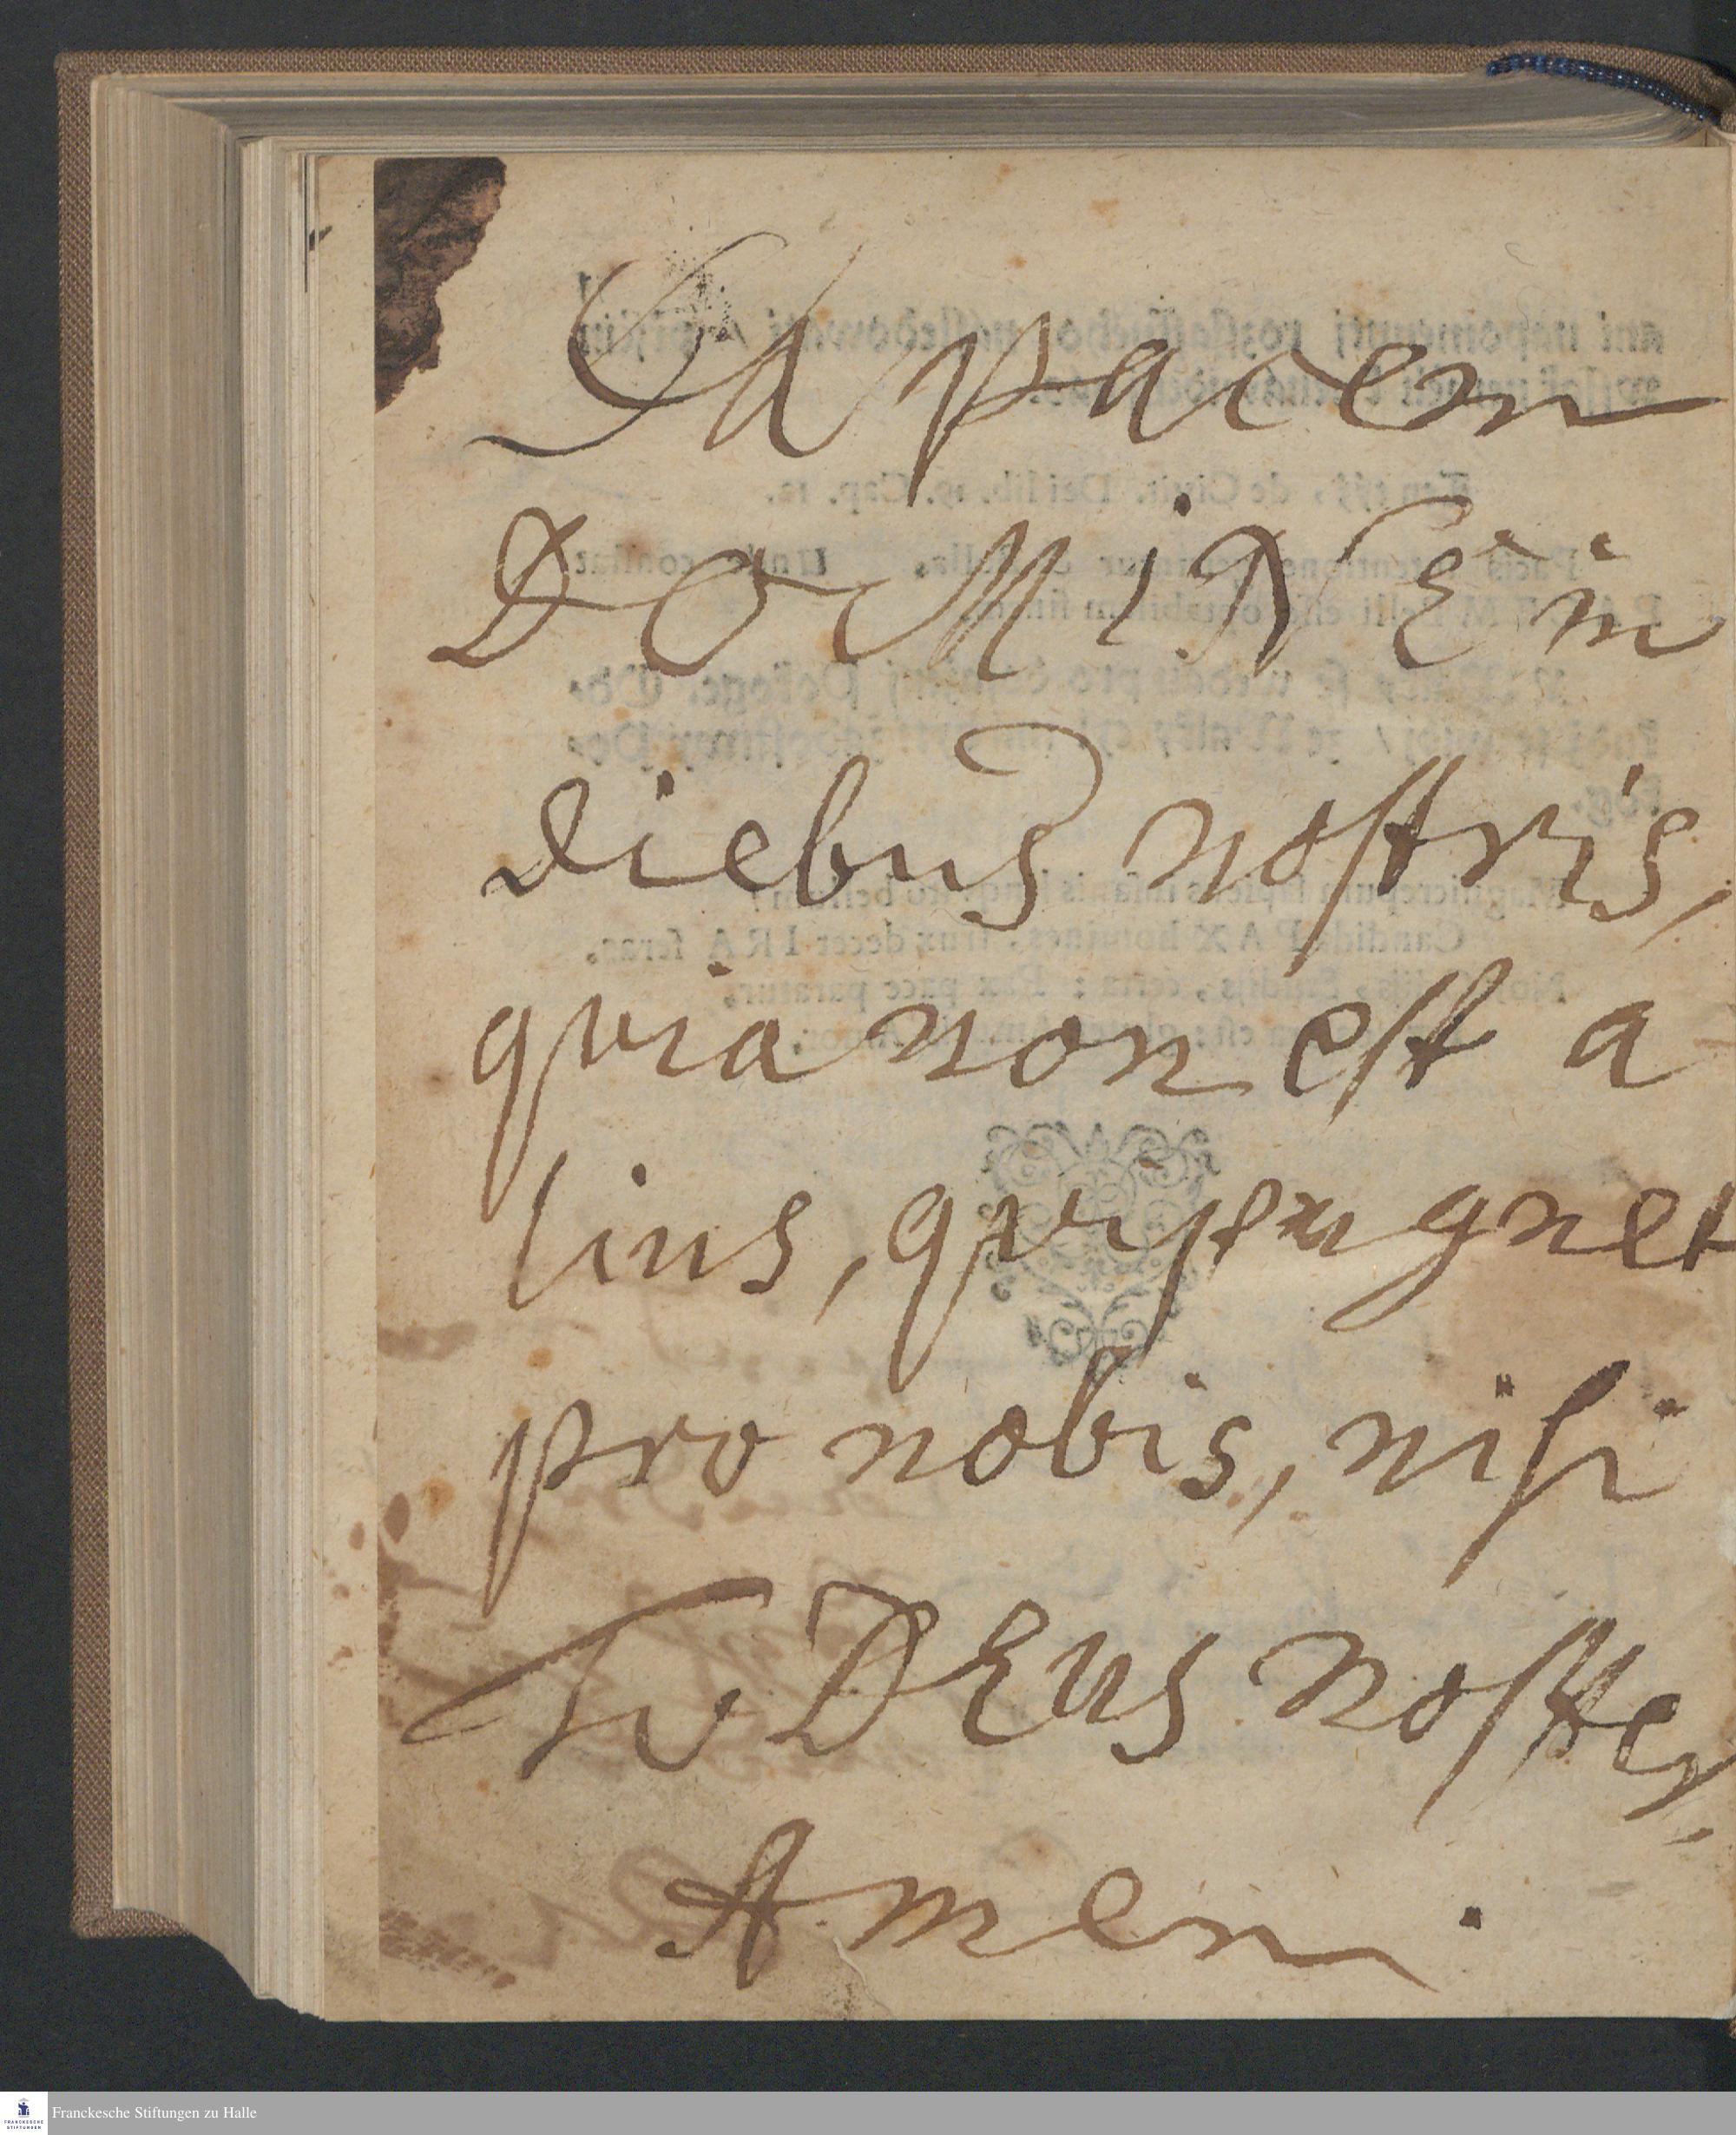 Da pacem
DOMiNE in
diebus nostris,
qvia non est a
lius, qvi pugnet
pro nobis, nisi
Tu DEus noster,
Amen.
Franckesche Stiftungen zu Halle
FRANCKESCHE
STIFTUNGEN